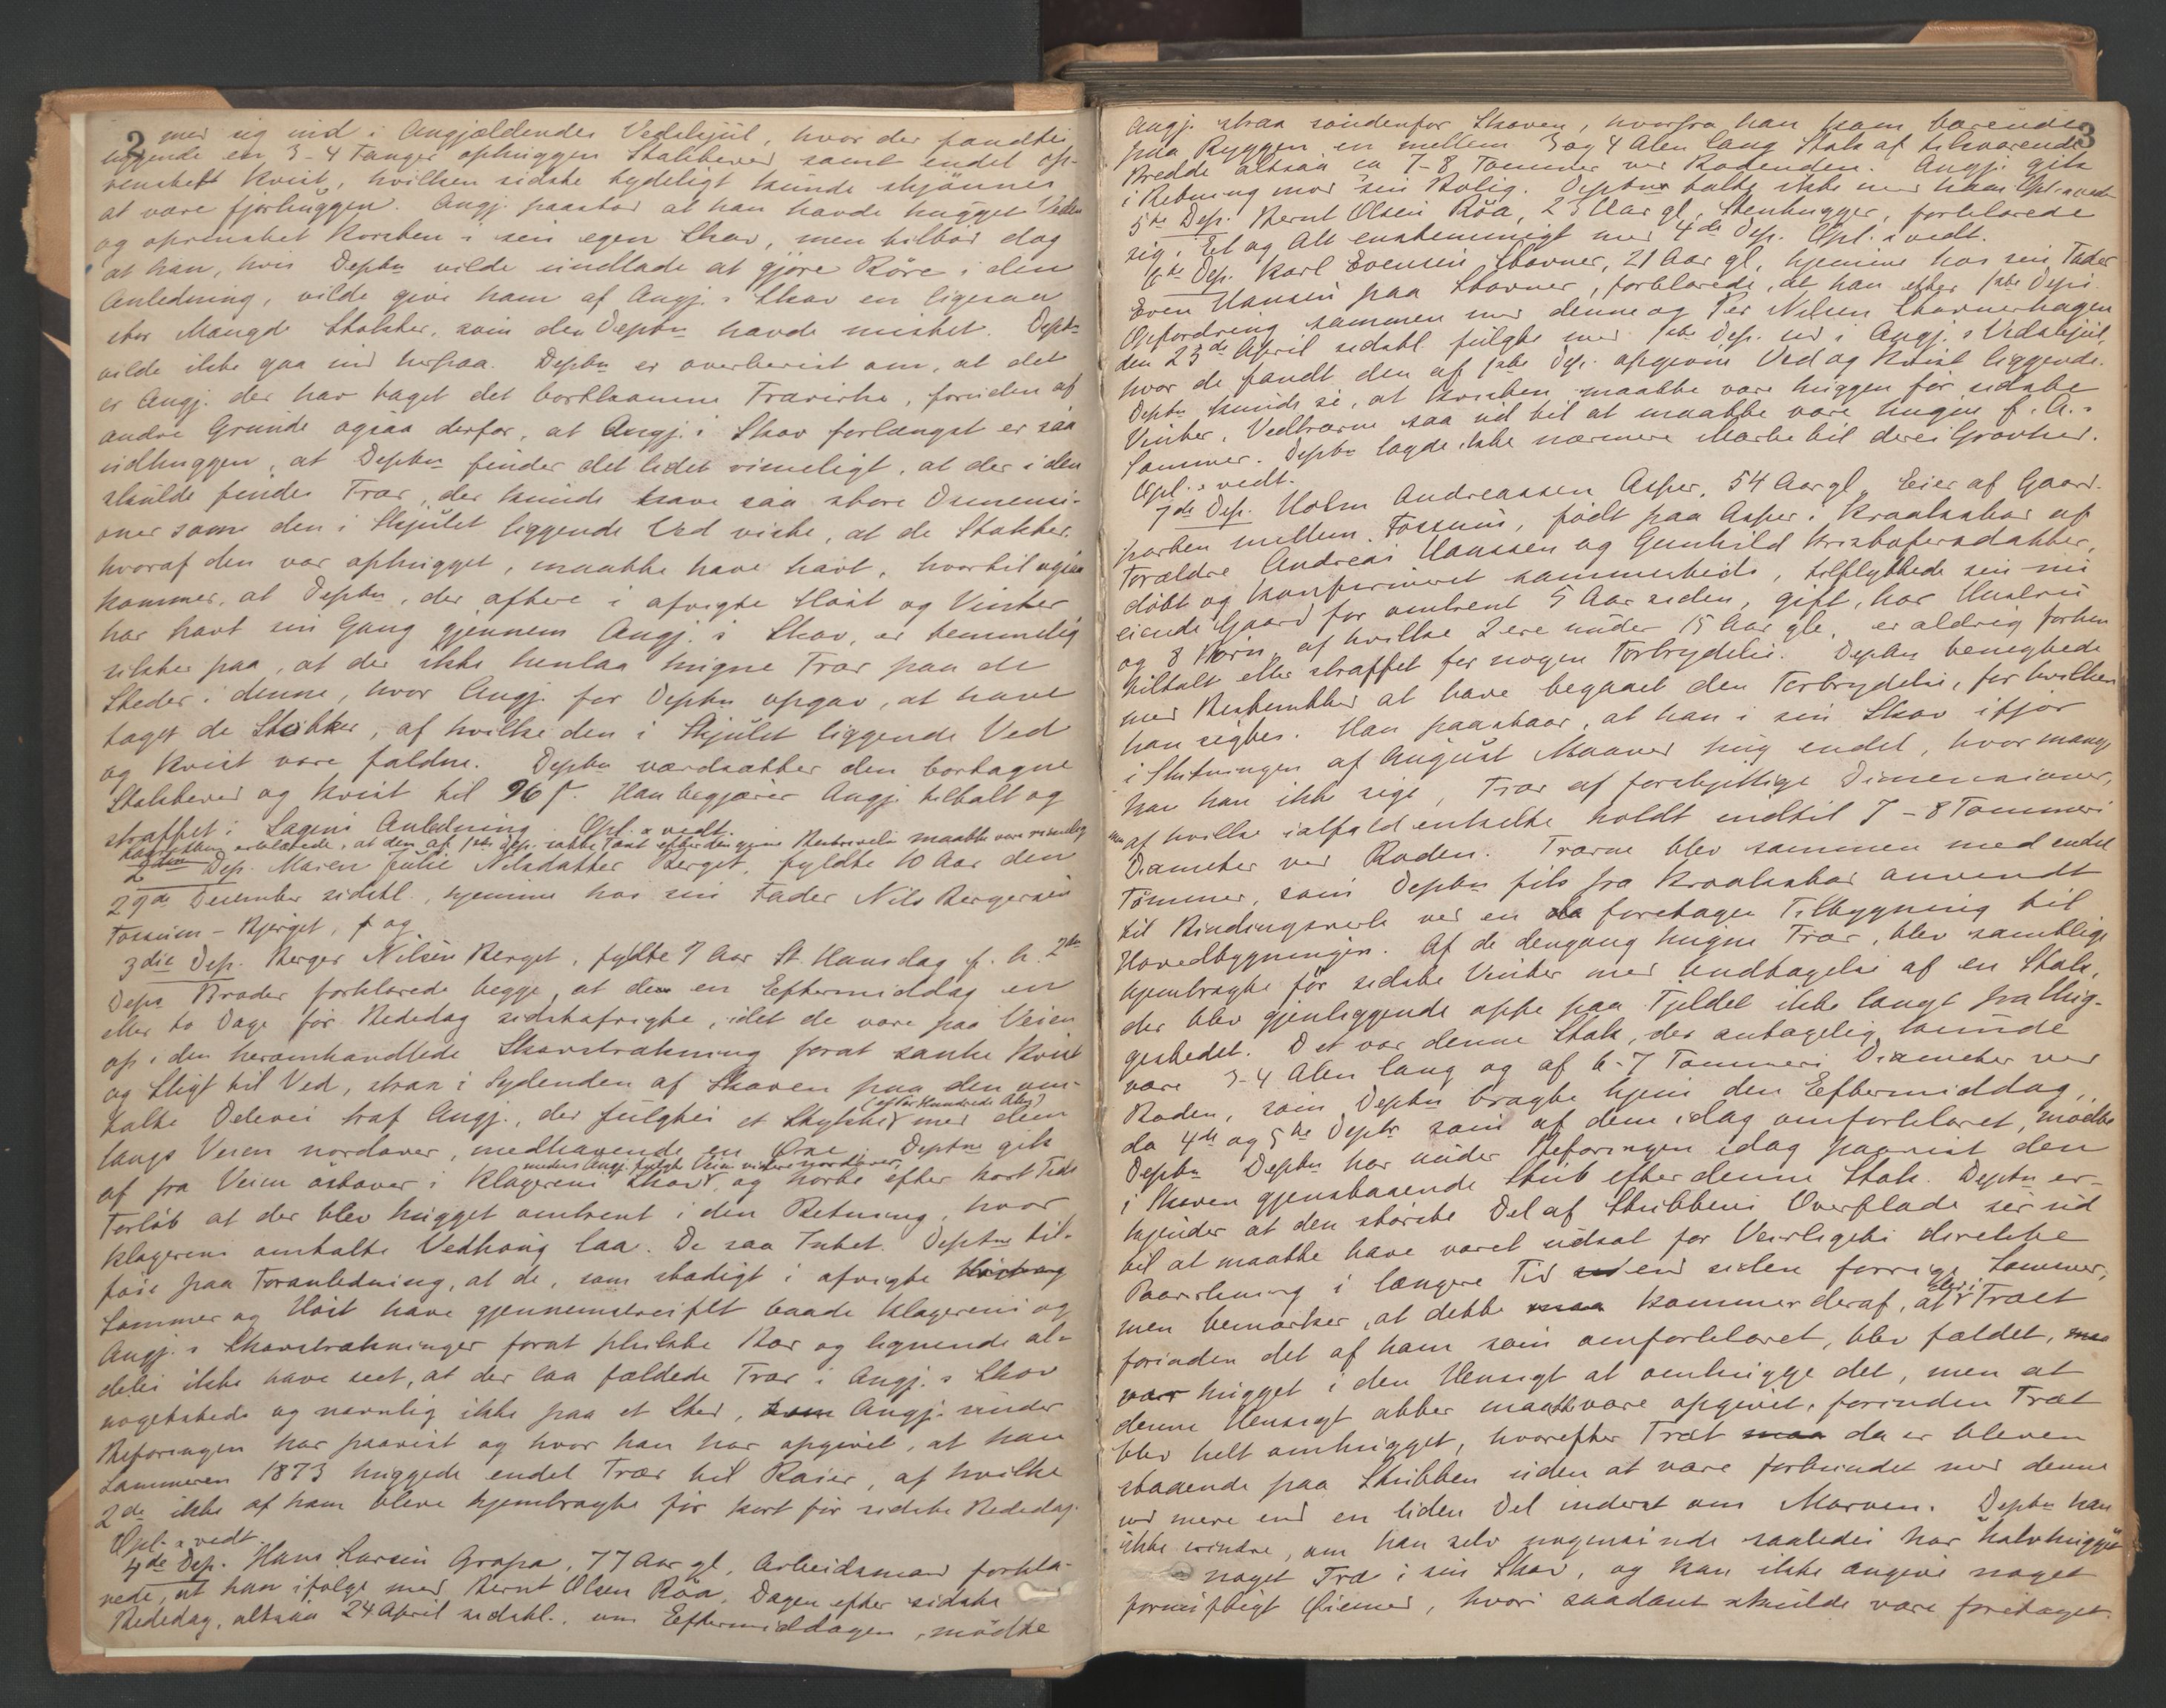 2
med sig ind i Angjældendes Vedskjul, hvor der fandtes
liggende en 3-4 Fange ophuggen Stakkeved samt endel op-
rensket Kvist, hvilken sidste tydeligt kunde skjønnes
at være fjorhuggen. Angj. paastod at han havde hugget Veden
og oprensket Kvisten i sin egen Skov, men tilbød dog
at han, hvis Deptn vilde undlade at gjøre Røre i den
Anledning, vilde give ham af Angj.s Skov en ligesaa
stor Mængde Stokker, som den Deptn havde mistet. Deptn
vilde ikke gaa ind herpaa. Deptn er overbevist om, at det
er Angj. der har taget det bortkomne Trævirke, foruden af
andre Grunde ogsaa derfor, at Angj.s Skov forlængst er saa
udhuggen, at Deptn finder det lidet rimeligt, at der i den
skulde findes Trær, der kunde have saa store Dimensi-
oner som den i Skjulet liggende Ved viste, at de Stokker,
hvoraf den var ophugget, maatte have havt, hvortil ogsaa
kommer, at Deptn, der oftere i afvigte Høst og Vinter
har havt sin Gang gjennem Angj.s Skov, er temmelig
sikker paa, at der ikke henlaa hugne Trær paa de
Steder i denne, hvor Angj. for Deptn opgav, at have
taget de Stokker, af hvilke den i Skjulet liggende Ved
og Kvist vare faldne. Deptn værdsætter den borttagne
Stakkeved og Kvist til 96 ſ. Han begjærer Angj. tiltalt og
straffet i Sagens Anledning. Opl. & vedt.
erklærede, at den af 1ste Dep. satte Taxt efter den givne Beskrivelse maatte være rimelig
2den Dep. Maren Julie Nilsdatter Berget, fyldte 10 Aar den
29de December sidstl., hjemme hos sin Fader Nils Bergersen
Fossum-Bjerget, og
3die Dep. Berger Nilsen Berget, fyldte 7 Aar St. Hansdag f. A. 2den
Deps Broder forklarede begge, at de en Eftermiddag en
eller to Dage før Bededag sidstafvigte, idet de vare paa Veien
op i den heromhandlede Skovstrækning forat sanke Kvist
og Sligt til Ved, strax i Sydenden af Skoven paa den om-
talte Odelvei traf Angj., der fulgtes et Stykke (et Par Hundrede Alen) med dem
langs Veien nordover, medhavende en Øxe. Deptne gik
af fra Veien østover i Klagerens Skov, medens Angj. fulgte Veien videre nordover, og hørte efter kort Tids
Forløb at der blev hugget omtrent i den Retning, hvor
Klagerens omtalte Vedhoug laa. De saa Intet. Deptne til-
føie paa Foranledning, at de, som stadigt i afvigte
Sommer og Høst have gjennemstreifet baade Klagerens og
Angj.s Skovstrækninger forat plukke Bær og lignende al-
deles ikke have seet, at der laa fældede Trær i Angj.s Skov
nogetsteds og navnlig ikke paa et Sted, som Angj. under
Befaringen har paavist og hvor han har opgivet, at han
Sommeren 1873 huggede endel Trær til Raier, af hvilke
2de ikke af ham bleve hjembragte før kort før sidste Bededag.
Opl. & vedt.
4de Dep. Hans Larsen Grapa, 77 Aar gl., Arbeidsmand forkla-
rede, at han ifølge med Bernt Olsen Röa, Dagen efter sidste
Bededag, altsaa 24 April sidstl., om Eftermiddagen, mødte
3
Angj. strax søndenfor Skoven, hvorfra han kom bærende
paa Ryggen en mellem 3 og 4 Alen lang Stok af tilsvarende
Bredde altsaa ca 7-8 Tommer ved Rodenden. Angj. gik
i Retning mod sin Bolig. Deptne talte ikke med ham. Opl. & vedt.
5te Dep. Bernt Olsen Röa, 23 Aar gl., Stenhugger, forklarede
sig i Et og Alt enstemmigt med 4de Dep. Opl. & vedt.
6te Dep. Karl Evensen Stovner, 21 Aar gl., hjemme hos sin Fader
Even Hansen paa Stovner, forklarede, at han efter 1ste Deps
Opfordring sammen med denne og Per Nilsen Stovnerhagen
den 23de April sidstl. fulgte med 1ste Dep. ind i Angj.s Vedskjul,
hvor de fandt den af 1ste Dep. opgivne Ved og Kvist liggende.
Deptn kunde se, at Kvisten maatte være huggen før sidste
Vinter. Vedtrærne saa ud til at maatte være hugne f. A.s
Sommer. Deptn lagde ikke nærmere Mærke til deres Grovhed.
Opl. & vedt.
7de Dep. Holm Andreassen Asper, 54 Aar gl., Eier af Gaard-
parten mellem Fossum, født paa Asper i Kraakstad af
Forældre Andreas Hanssen og Gunhild Kristofersdatter,
døbt og konfirmeret sammesteds, tilflyttede sin nu
eiende Gaard for omtrent 5 Aar siden, gift, har Hustru
og 8 Børn, af hvilke 2 ere under 15 Aar gle, er aldrig forhen
tiltalt eller straffet for nogen Forbrydelse. Deptn benegtede
med Bestemthed at have begaaet den Forbrydelse, for hvilken
han sigtes. Han paastaar, at han i sin Skov ifjor
i Slutningen af August Maaned hug endel, hvor mange
kan han ikke sige, Trær af forskjellige Dimensioner,
men af hvilke ialfald enkelte holdt indtil 7-8 Tommer i
Diameter ved Roden. Trærne blev sammen med endel
Tømmer, som Deptn fik fra Kraakstad anvendt
til Bindingsverk ved en da foretagen Tilbygning til
Hovedbygningen. Af de dengang hugne Trær, blev samtlige
hjembragte før sidste Vinter med Undtagelse af en Stok,
der blev gjenliggende oppe paa Fjeldet ikke langt fra Hug-
gestedet. Det var denne Stok, der antagelig kunde
være 3-4 Alen lang og af 6-7 Tommers Diameter ved
Roden, som Deptn bragte hjem den Eftermiddag,
da 4de og 5te Deptr som af dem idag omforklaret, mødte
Deptn. Deptn har under Befaringen idag paavist den
i Skoven gjenstaaende Stub efter denne Stok. Deptn er-
kjender at den største Del af Stubbens Overflade ser ud
til at maatte have været udsat for Veirligets direkte
Paavirkning i længere Tid end siden forrige Sommer,
men bemærker, at dette kommer deraf, at Træet
forinden det af ham som omforklaret, blev fældet,
var hugget i den Hensigt at omhugge det, men at
denne Hensigt atter maatte være opgivet, forinden Træet
blev helt omhugget, hvorefter Træt da er bleven
staaende paa Stubben uden at være forbundet med denne
ved mere end en liden Del inderst om Marven. Deptn kan
ikke erindre, om han selv nogensinde saaledes har halvhugget
noget Træ i sin Skov, og kan ikke angive noget
fornuftigt Øiemed, hvori saadant skulde være foretaget.